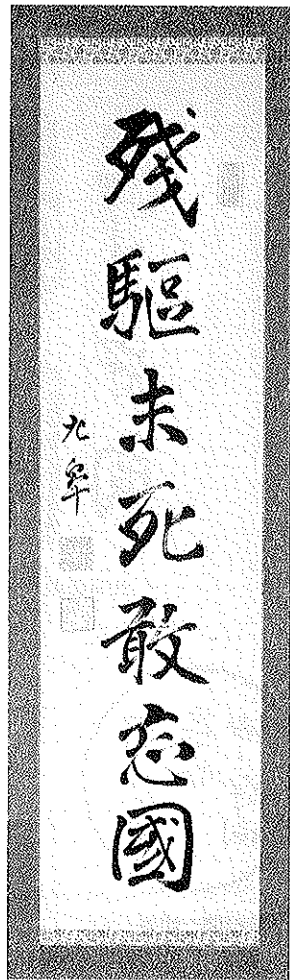 殘驅未死敢忘國
九皐